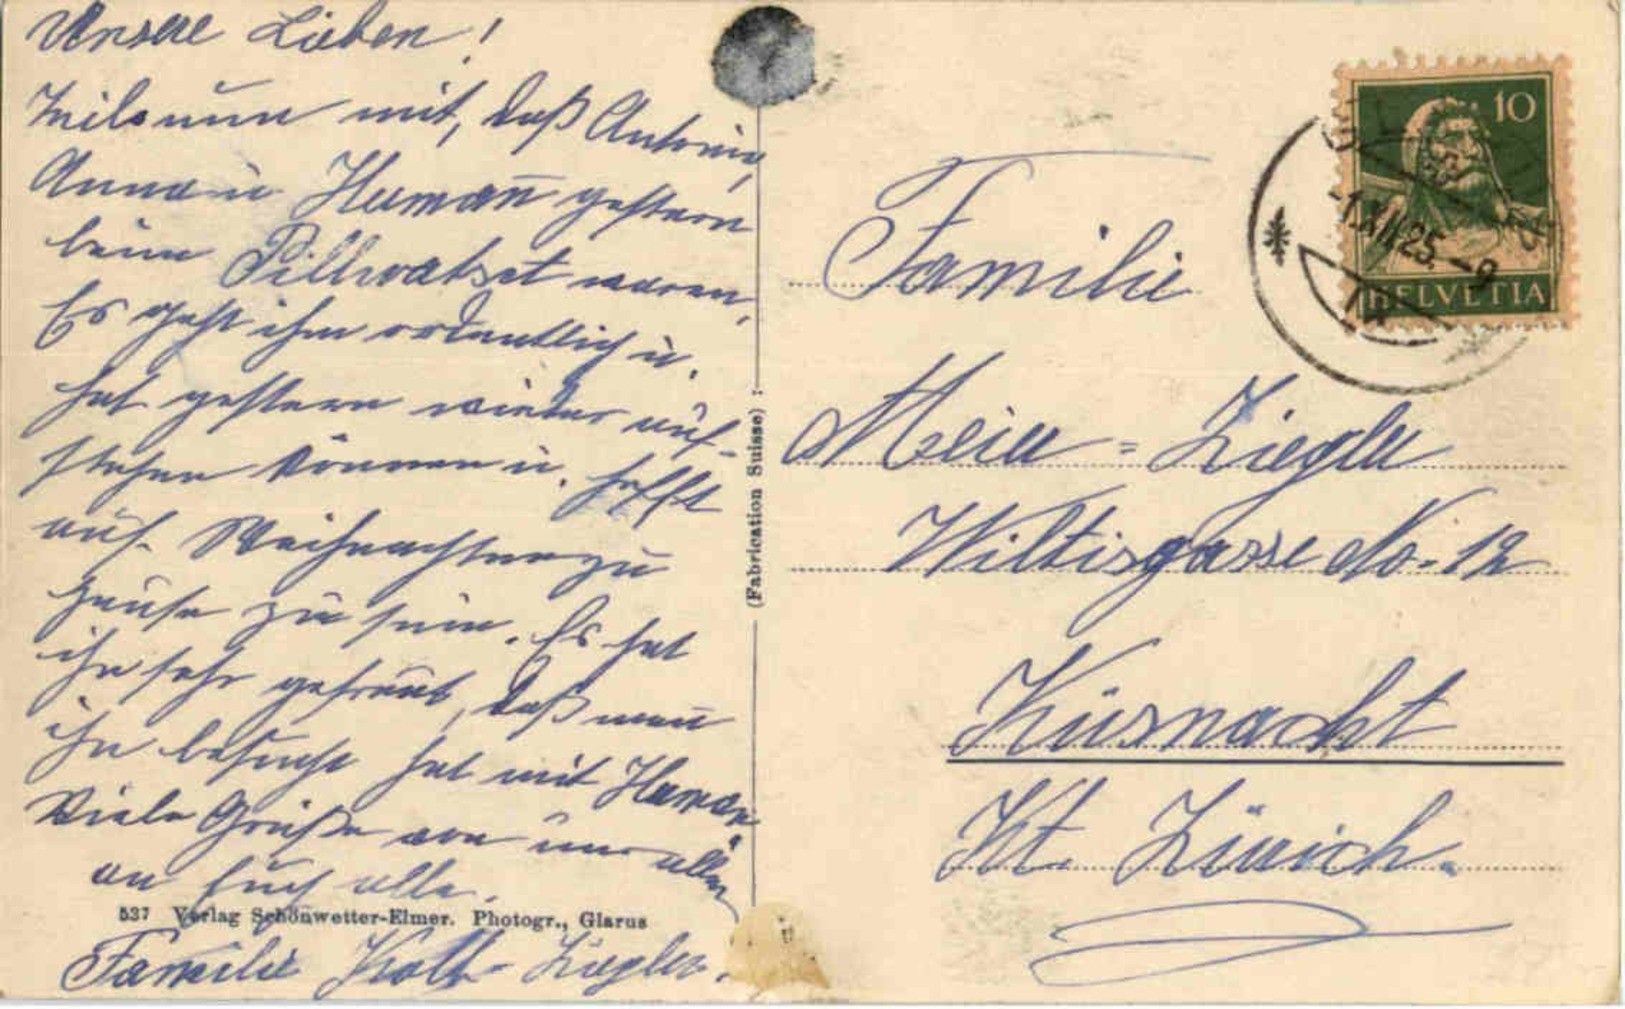 Unsere Lieben!
Teile nun mit, daß Antoni,
Anna u Herman̅ gestern
beim waren,
Es geht ihm ordentlich u.
hat gestern wieder auf-
stehen können u. hofft
auf Weihnachten zu
Hause zu sein. Es hat
ihn sehr gefreut, daß man
ihn besucht hat mit Herman
Viele Grüße von uns allen
an Euch alle.
537 Verlag Schönwetter-Elmer. Photogr., Glarus
Familie Ziegler.
(Fabrication Suisse)
10
HELVETIA
-1.XII.25.-9
Familie
Meier=Ziegler
Wiltisgasse No. 12
Küsnacht
Kt. Zürich.